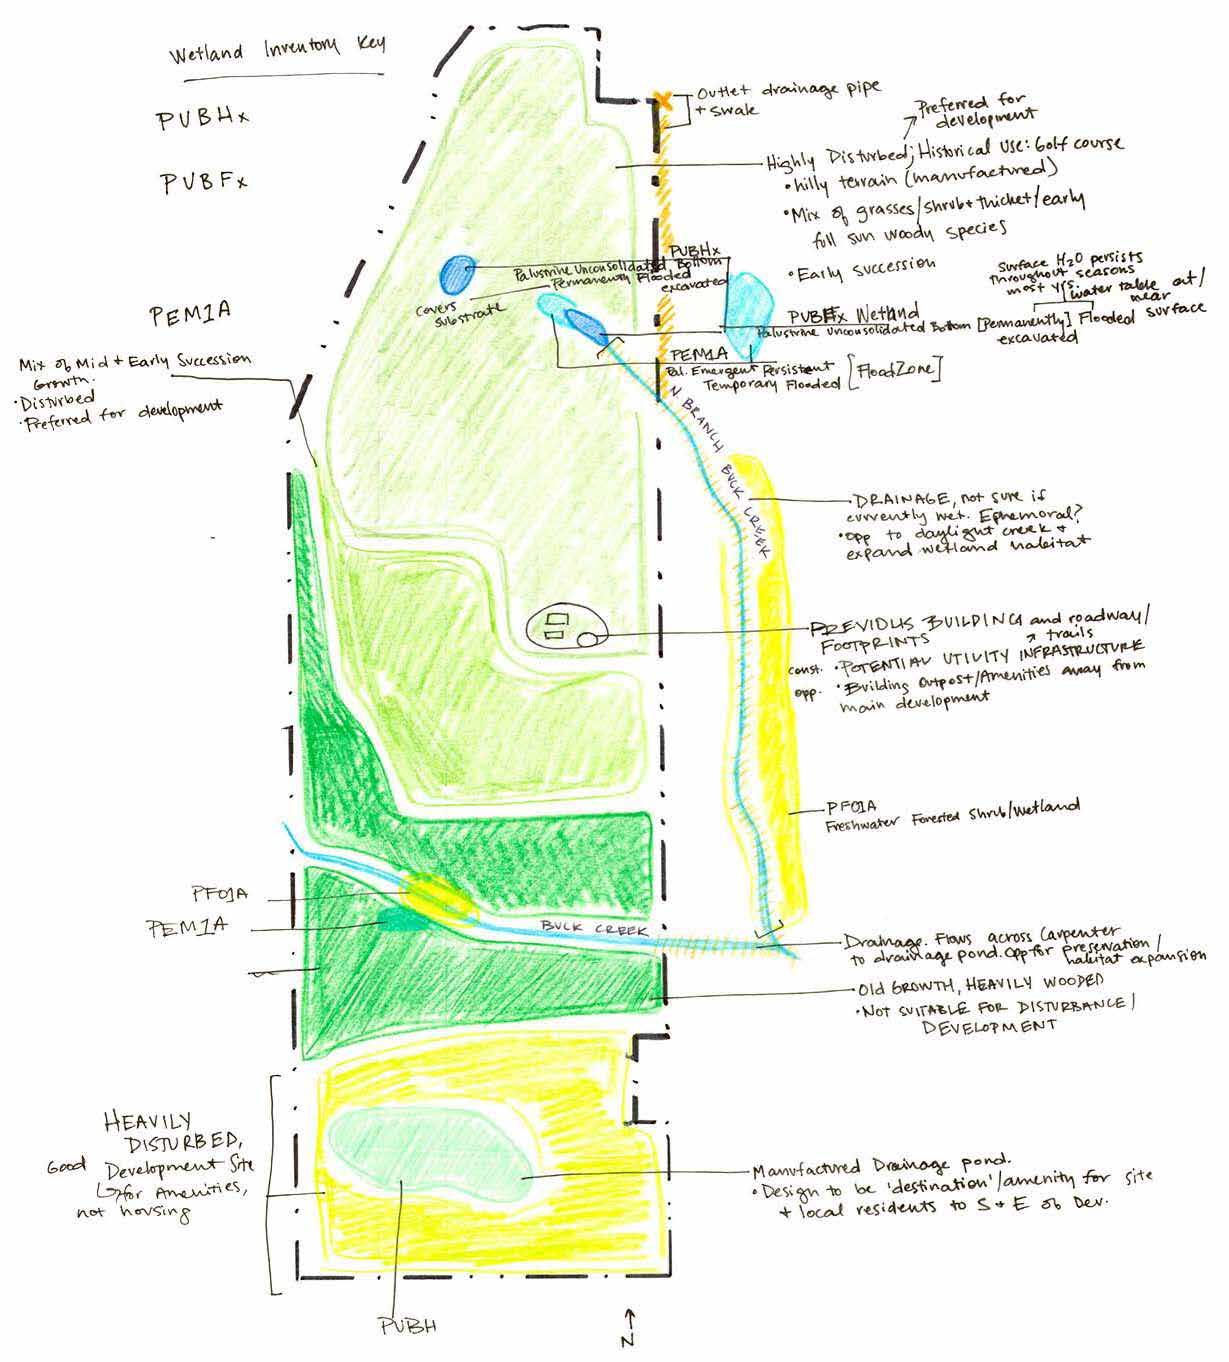 Wetland Inventory Key
PUBHx
PUBFx
PEM1A
Outlet drainage pipe
+ swale
Preferred for
development
Highly Disturbed; Historical Use: Golf course
• hilly terrain (manufactured)
• Mix of grasses/shrub + thicket/early
full sun woody species
• Early succession
PUBHx
Palustrine Unconsolidated Bottom
Permanently Flooded
excavated
covers
substrate
Surface H2O persists
throughout seasons
most yrs.
water table at/
near
surface
Wetland
Palustrine Unconsolidated Bottom [Permanently] Flooded
excavated
PEM1A
Pal. Emergent Persistent
Temporary Flooded [FloodZone]
Mix of Mid + Early Succession
Growth.
• Disturbed
• Preferred for development
N BRANCH BUCK CREEK
DRAINAGE, not sure if
currently wet. Ephemoral?
• opp to daylight creek +
expand wetland habitat
PREVIOUS BUILDING and roadway/
trails
FOOTPRINTS
const. • POTENTIAL UTILITY INFRASTRUCTURE
opp. • Building Outpost/Amenities away from
main development
PFO1A
Freshwater Forested Shrub/Wetland
PFO1A
PEM1A
BUCK CREEK
Drainage. Flows across Carpenter
to drainage pond. Opp for preservation/
habitat expansion
Old GROWTH, HEAVILY WOODED
• NOT SUITABLE FOR DISTURBANCE/
DEVELOPMENT
HEAVILY
DISTURBED,
Good Development Site
for Amenities,
not housing
Manufactured Drainage pond.
• Design to be 'destination'/amenity for site
+ local residents to S + E of Dev.
PUBH
N